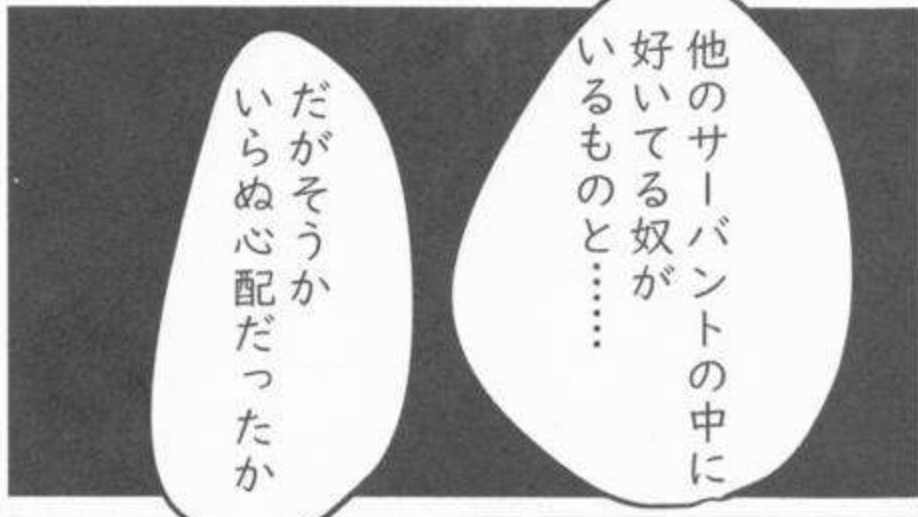 他のサーバントの中に
好いてる奴が
いるものと……
だがそうか
いらぬ心配だったか